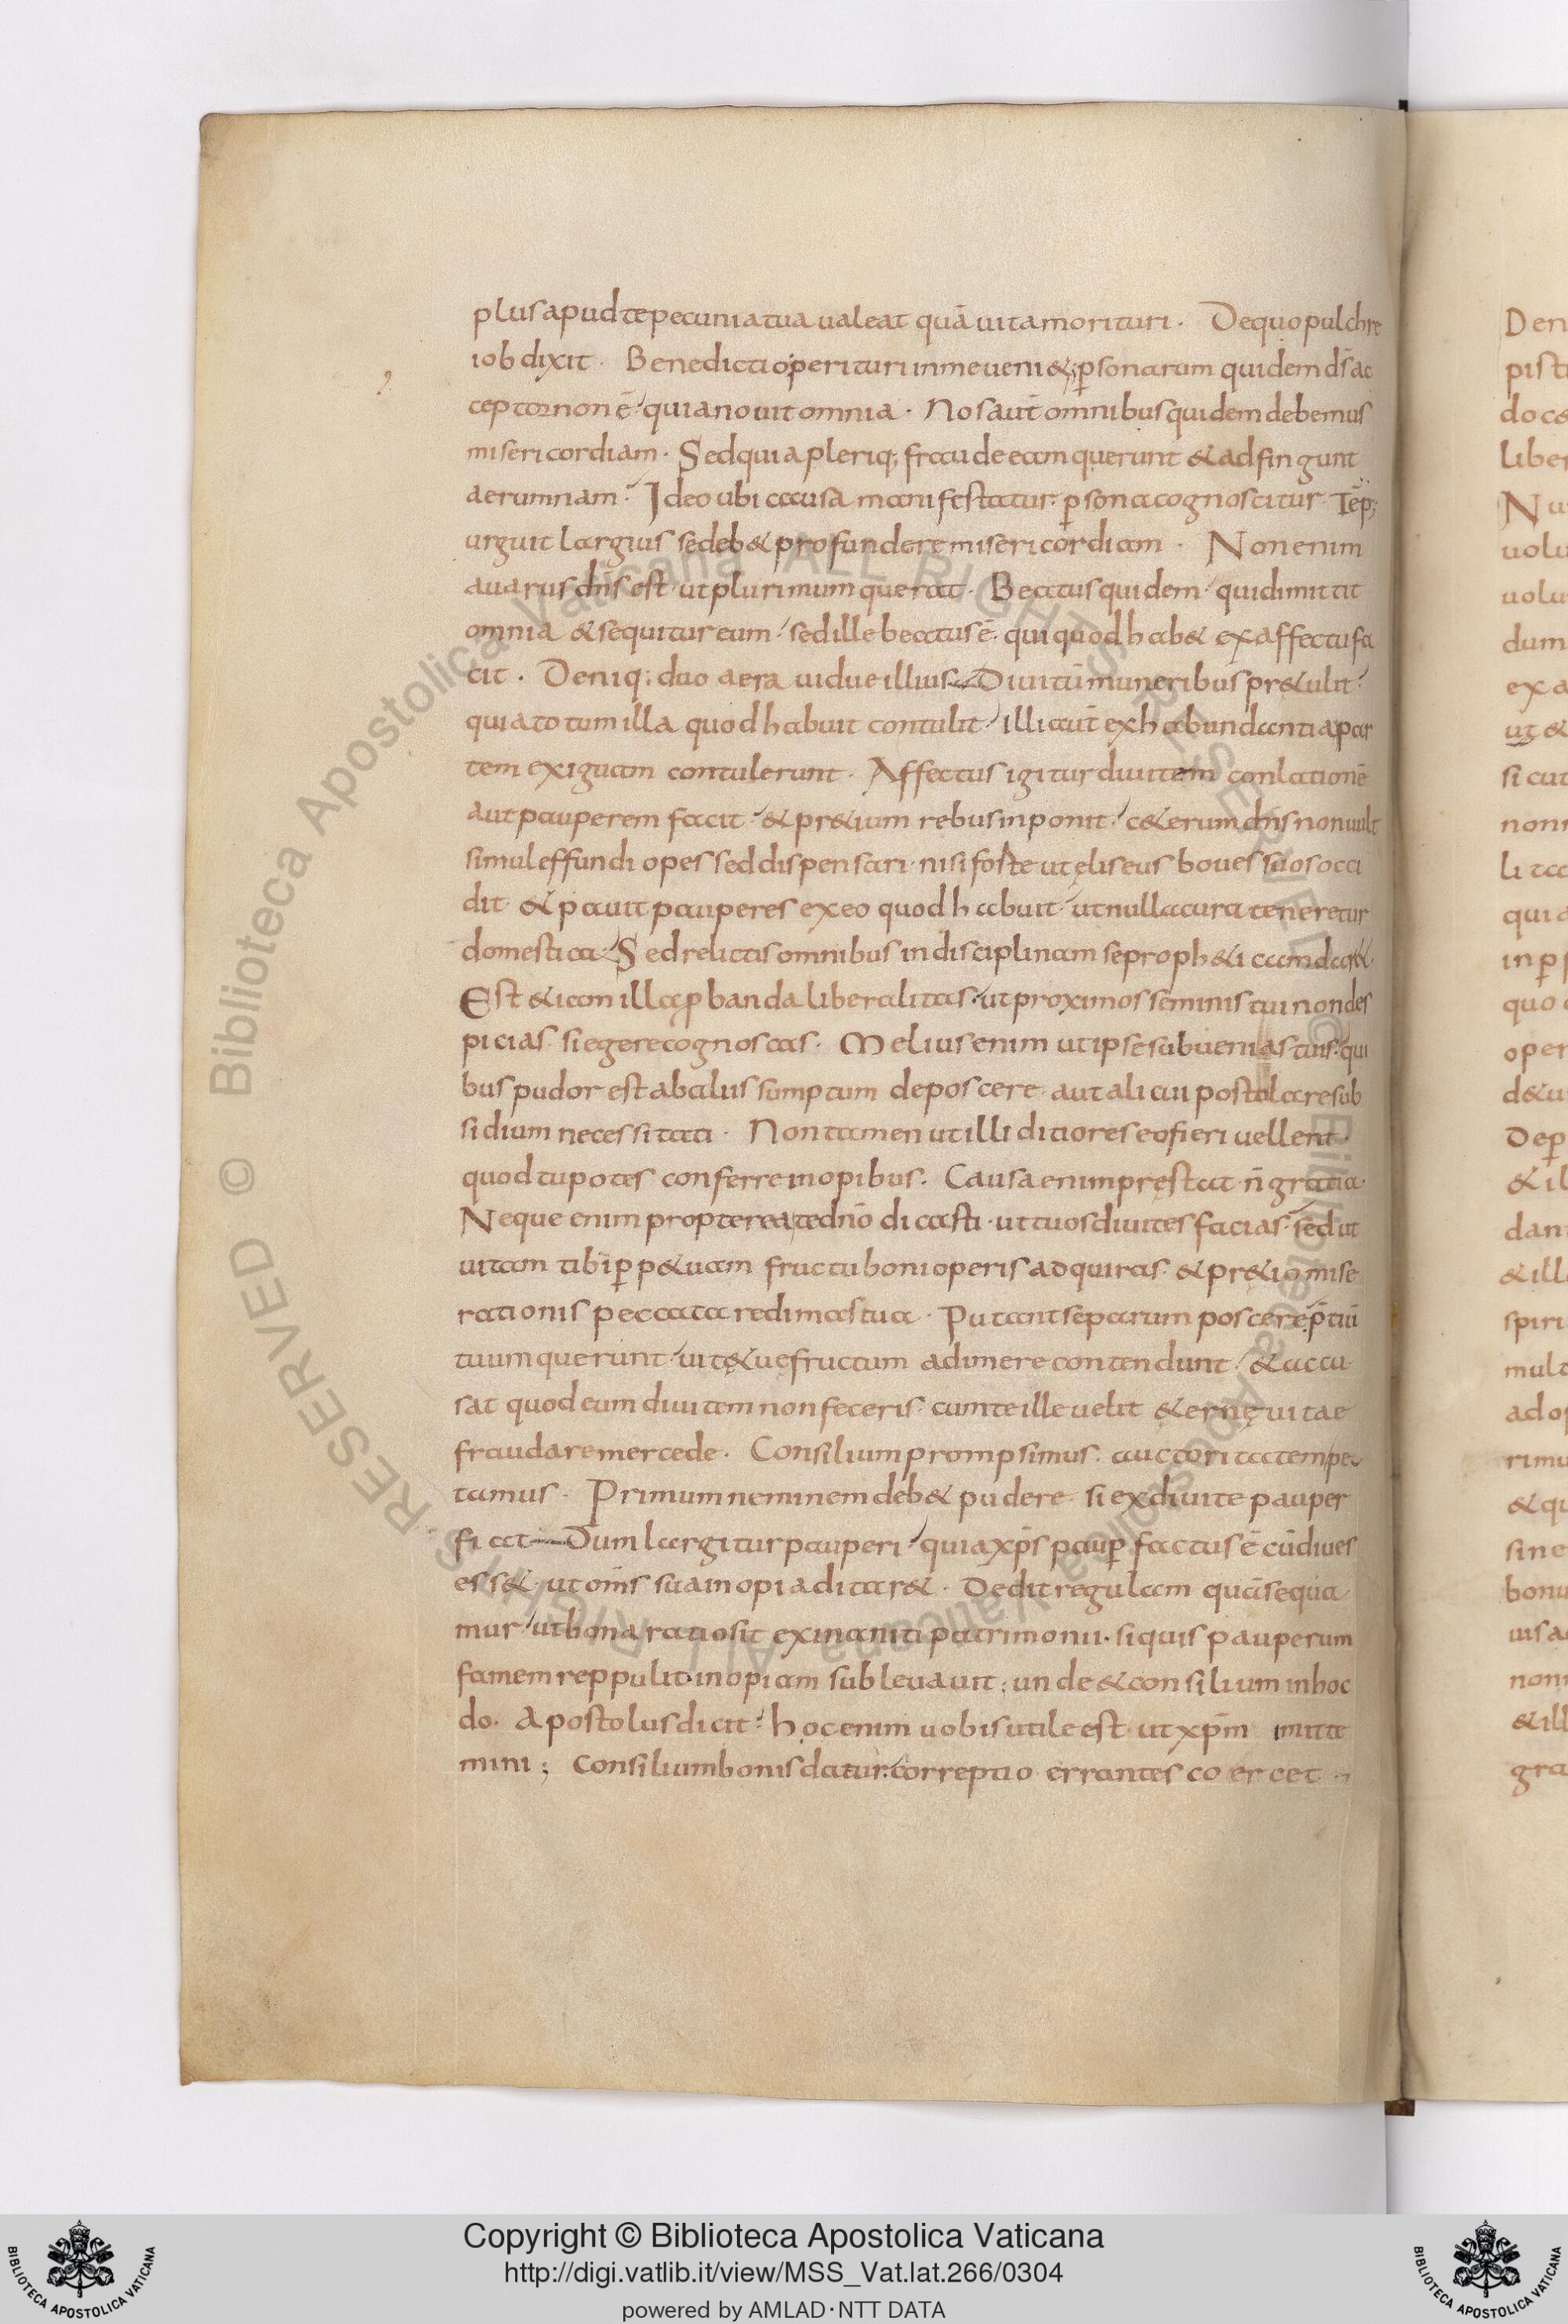 plus apud te pecunia tua ualeat quā uita morituri · De quo pulchre
iob dixit · Benedictio perituri in me ueni&; p̱sonarum quidem dŝ ac
ceptor non ē quia nouit omnia · Nos aut̄ omnibus quidem debemus
misericordiam · Sed quia pleriq; fraude eam querunt & adfingunt
aerumnam · Ideo ubi causa manifestatur p̱sona cognoscitur · Tēp;
urguit largius se deb& profundere misericordiam · Non enim
auarus dn̄s est · ut plurimum querat · Beatus quidem qui dimittit
omnia & sequitur eum sed ille beatus ē · qui quod hab& ex affectu fa
cit · Deniq; duo aera uidue illius Diuitū muneribus pr&ulit
quia totum illa quod habuit contulit illi aut̄ ex habundantia par
tem exiguam contulerunt · Affectus igitur diuitem conlationē
aut pauperem facit & pr&ium rebus inponit c&erum dn̄s non uult
simul effundi opes sed dispensari nisi foste ut ęliseus boues suos occi
dit & pauit pauperes ex eo quod habuit ut nulla cura teneretur
domestica · Sed relictis omnibus in disciplinam se proph&icam dar&
Est & iam illa p̱banda liberalitas ut proximos seminis tui non des
picias si egere cognoscas · Melius enim ut ipse subuenias tuis qui
bus pudor est ab aliis sumptum deposcere aut alicui postolare sub
sidium necessitati · Non tamen ut illi ditiores eo fieri uellent
quod tu potes conferre inopibus · Causa enim pręstat n̄ gratia
Neque enim propterea te dn̄o dicasti ut tuos diuites facias sed ut
uitam tibi p̱p&uam fructu boni operis adquiras & pr&io mise
rationis peccata redimas tua · Putant se parum poscere p̄tiū
tuum querunt uitę &uę fructum adimere contendunt & accu
sat quod eum diuitem non feceris cum te ille uelit &ernę uitae
fraudare mercede · Consilium prompsimus auctoritatem pe
tamus · Primum neminem deb& pudere si ex diuite pauper
fiat Dum largitur pauperi quia xp̄s paup̱ factus ē cū diues
ess& ut om̄s sua inopia ditar& · Dedit regulam quā sequa
mur ut bona ratio sit exinaniti patrimonii · si quis pauperum
famem reppulit inopiam subleuauit ; unde & consilium in hoc
do · Apostolus dicit hoc enim uobis utile est ut xp̄m imita
mini ; Consilium bonis datur correptio errantes coercet
?
Den
liber
uolu
dum
ex a
ut &
sicut
non
quia
quo
oper
& il
dan
& ill
spiri
mult
ad o
rimu
& qu
sine
bonu
non
& ill
gra
© Biblioteca Apostolica Vaticana ALL RIGHTS RESERVED
© Biblioteca Apostolica Vaticana ALL RIGHTS RESERVED
Copyright © Biblioteca Apostolica Vaticana
http://digi.vatlib.it/view/MSS_Vat.lat.266/0304
powered by AMLAD·NTT DATA
BIBLIOTECA APOSTOLICA VATICANA
BIBLIOTECA APOSTOLICA VATICANA